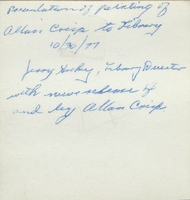 Presentation of painting of
Allan Crisp to Library
10/30/77
Jerry Huky, Library Director
with news release
and by Allan Crisp